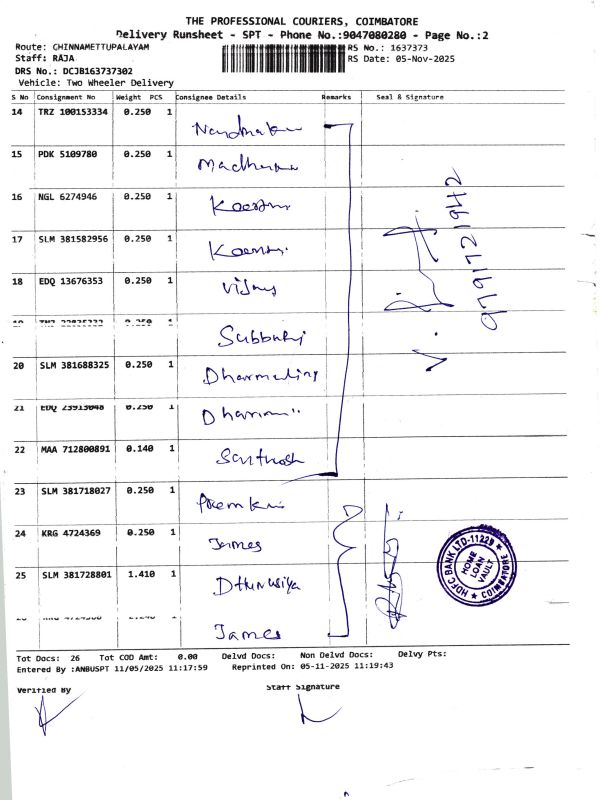 THE PROFESSIONAL COURIERS, COIMBATORE
Delivery Runsheet - SPT - Phone No.:9047080280 - Page No.:2
Route: CHINNAMETTUPALAYAM RS No.: 1637373
Staff: RAJA RS Date: 05-Nov-2025
DRS No.: DCJB163737302
Vehicle: Two Wheeler Delivery
S No Consignment No Weight PCS Consignee Details Remarks Seal & Signature
14 TRZ 100153334 0.250 1
15 PDK 5109780 0.250 1
16 NGL 6274946 0.250 1
17 SLM 381582956 0.250 1
18 EDQ 13676353 0.250 1 Vijay
19 0.250 1 Subburaj
20 SLM 381688325 0.250 1 Dharmaling
21 EDQ 23913048 0.250 1
22 MAA 712800891 0.140 1 Santhosh
9791721942
23 SLM 381718027 0.250 1 Prem Ku
24 KRG 4724369 0.250 1 James
25 SLM 381728801 1.410 1
James
HDFC BANK LTD-11229 * COIMBATORE *
HOME LOAN VAULT
Tot Docs: 26 Tot COD Amt: 0.00 Delvd Docs: Non Delvd Docs: Delvy Pts:
Entered By :ANBUSPT 11/05/2025 11:17:59 Reprinted On: 05-11-2025 11:19:43
Verified By Staff Signature